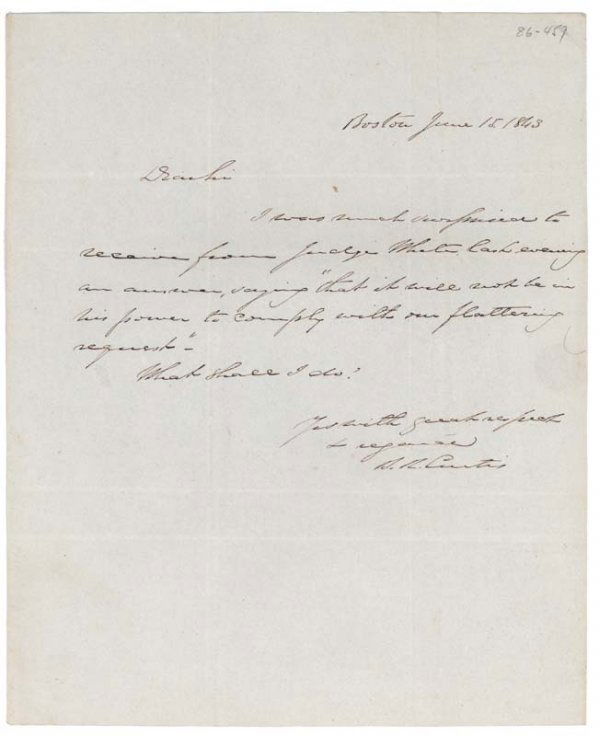 86-459
Boston June 15. 1843
Dear Sir
I was much surprised to
receive from Judge White, last evening
an answer, saying "that it will not be in
his power to comply with our flattering
request"-
What shall I do?
Yrs with great respect
& regard
B. R. Curtis